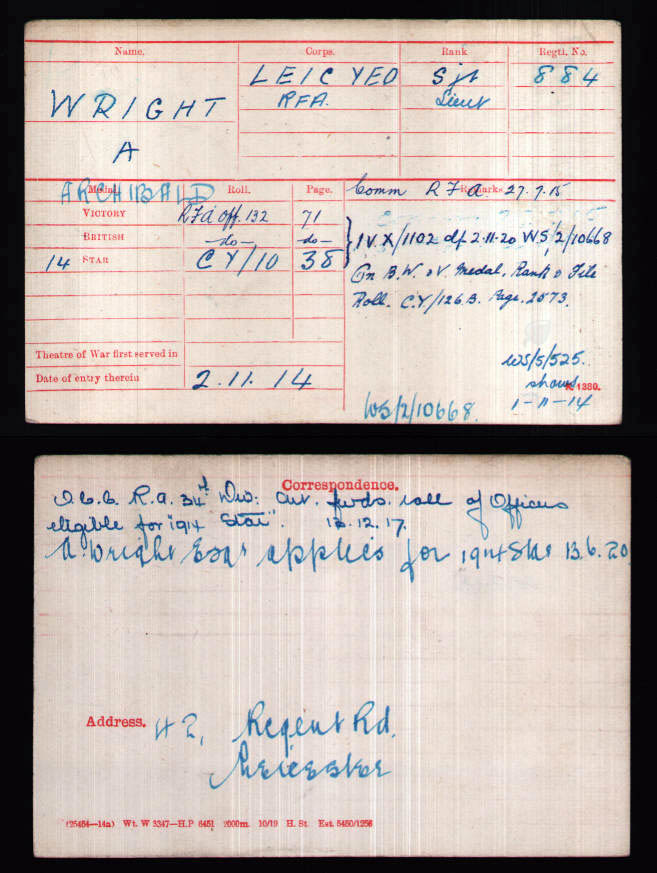 Name. Corps. Rank Regtl. No.
WRIGHT LEIC YEO Sjt 884
A RFA. Lieut
ARCHIBALD
Medal. Roll. Page. Remarks
Comm R F A. 27.7.15
VICTORY RFA Off. 132 71
BRITISH —do— —do— } IV.X/1102 df 2.11.20 WS/2/10668
14 STAR CY/10 38
On B.W. & V. Medal. Rank & File
Roll. CY/126 B. Page. 2573.
Theatre of War first served in
WS/5/525.
Date of entry therein 2.11.14
shows K 1380.
WS/2/10668. 1-11-14
Correspondence.
R.A. 34th Div: Art. fwds. roll of Officers
eligible for "1914 Star". 12.12.17.
A Wright Esqr applies for 1914 Star 13.6.20
Address. 42, Regent Rd.
Leicester
(25454—14a) Wt. W 3347—H.P 8451 2000m. 10/19 H. St. Est. 5480/1256